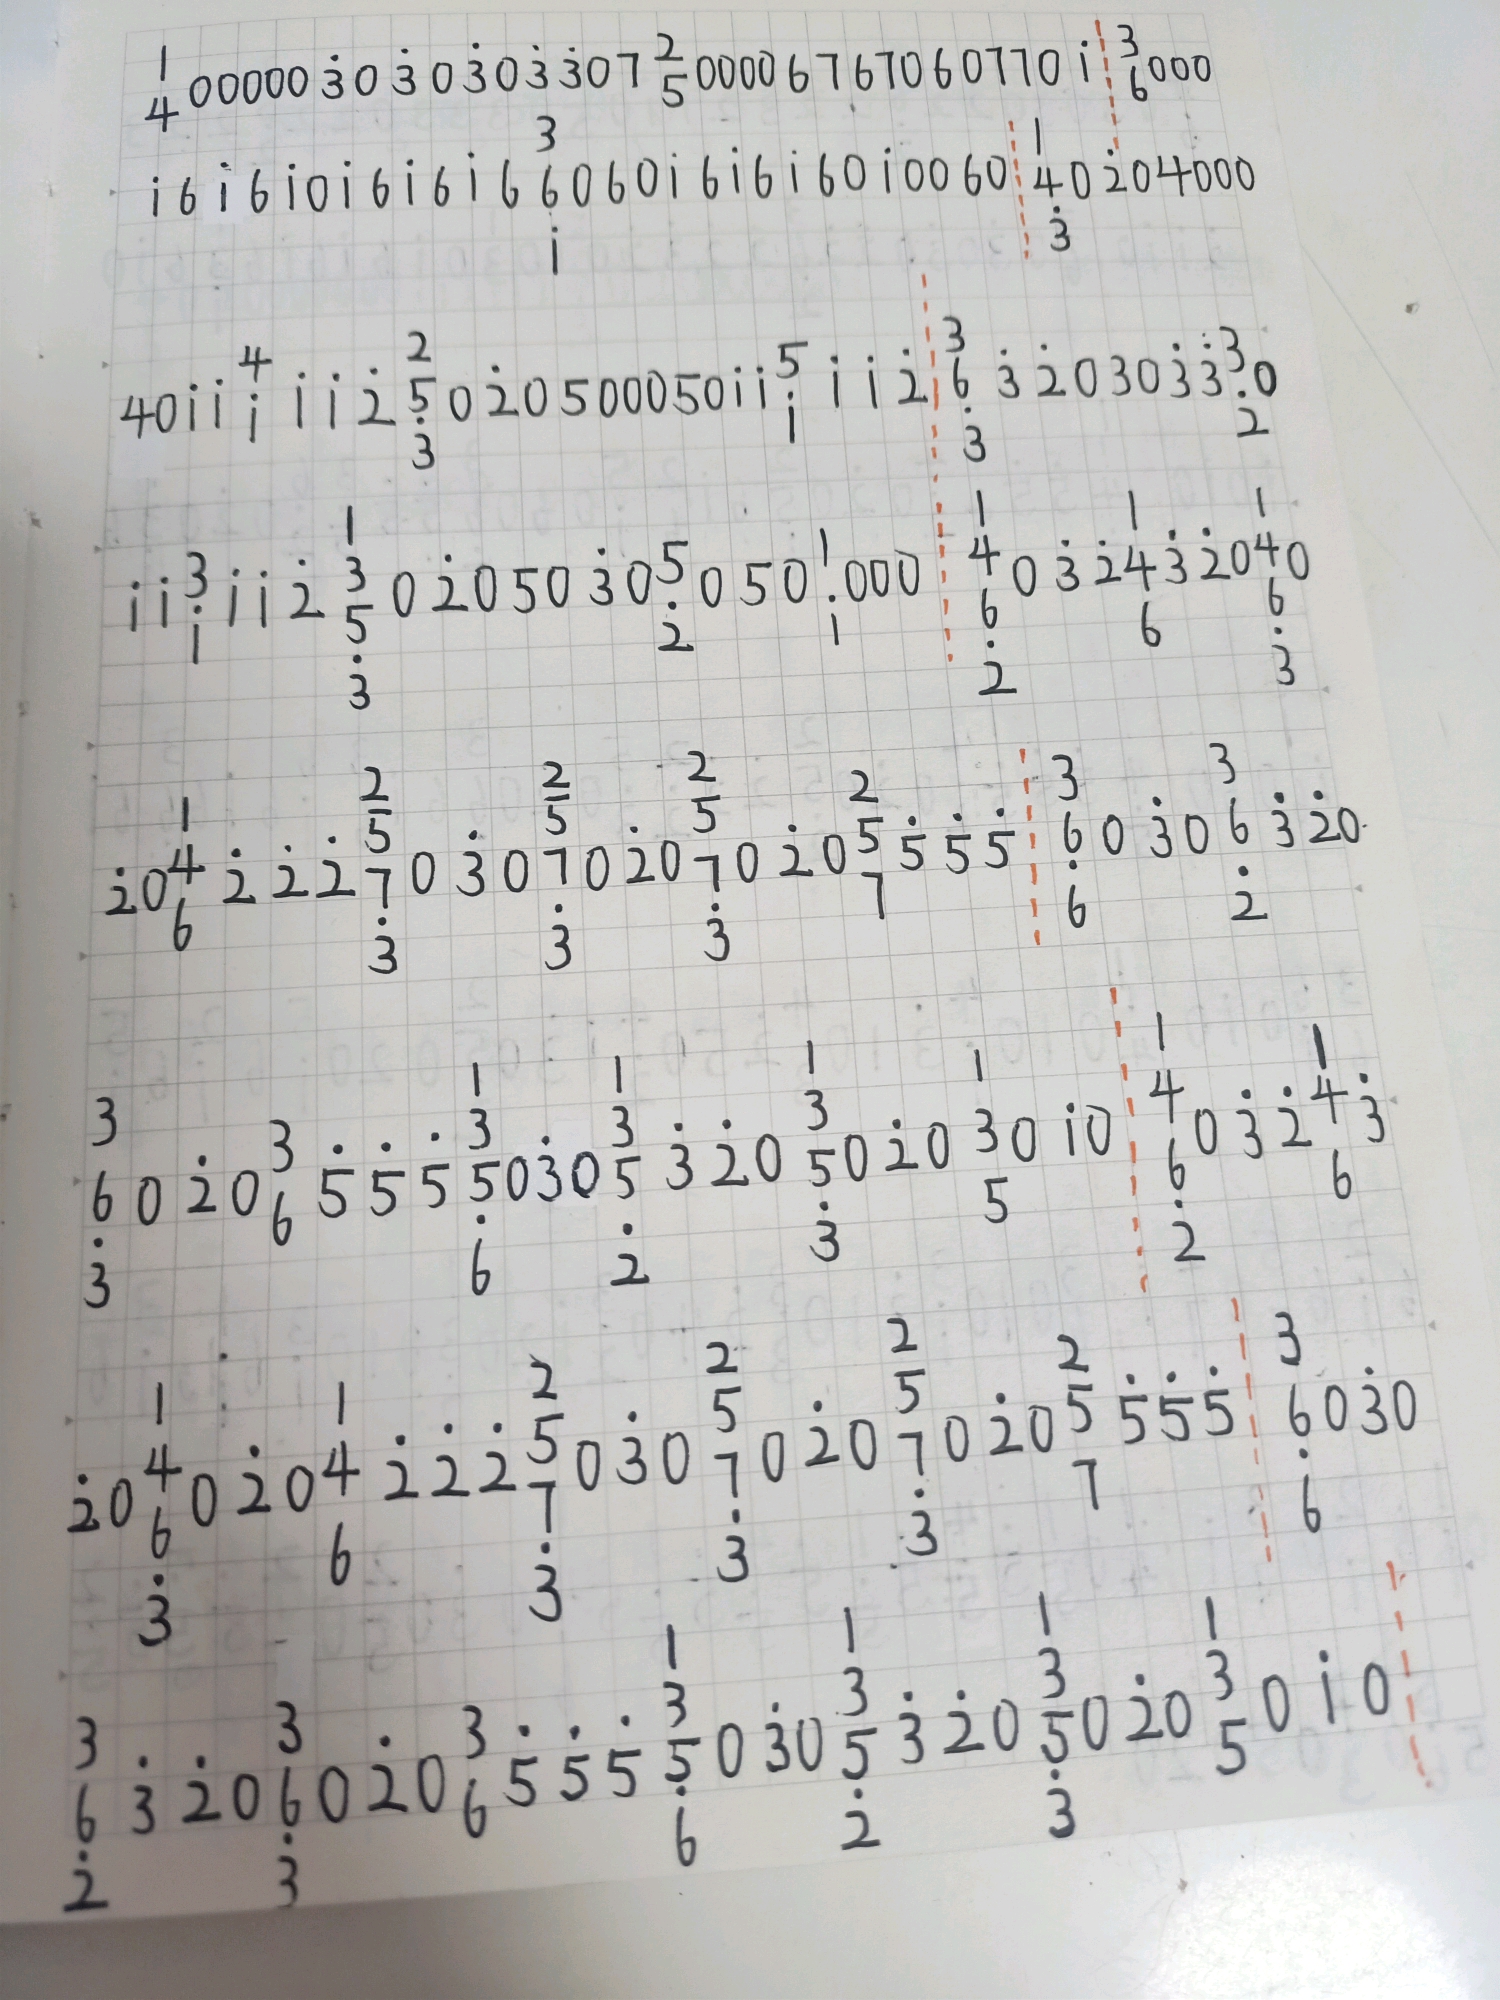 14000003̇03̇03̇03̇3̇072500006767060770i36000
i6i6i0i6i6i636i060i6i6i60i0060143̇02̇04000
40ii4iii2̇253̇02̇0500050ii5iii2̇363̇3̇2̇0303̇3̇32̇0
ii3iii2̇1353̇02̇0503̇052̇0501i0001462̇03̇2̇1463̇2̇01463̇0
2̇01462̇2̇2̇2573̇03̇02573̇02̇02573̇02̇02575̇5̇5̇366̇03̇0362̇3̇2̇0
363̇02̇0365̇5̇5̇1356̇03̇01352̇3̇2̇01353̇02̇01350i01462̇03̇2̇1463̇
2̇01463̇02̇01462̇2̇2̇2573̇03̇02573̇02̇02573̇02̇02575̇5̇5̇366̇03̇0
362̇3̇2̇0363̇02̇0365̇5̇5̇1356̇03̇01352̇3̇2̇01353̇02̇01350i0